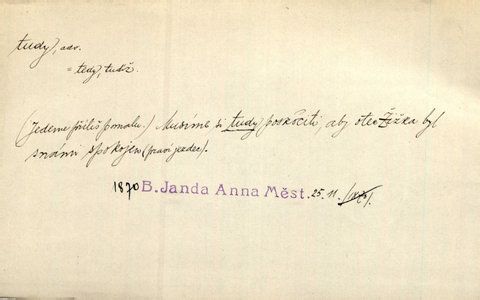 tudy, adv.
= tedy, tudíž.
(Jedeme příliš pomalu.) Musíme si tudy poskočiti, aby otec Žižka byl
s námi spokojen (praví jezdec).
1870 B. Janda Anna Měst. 25. 11.